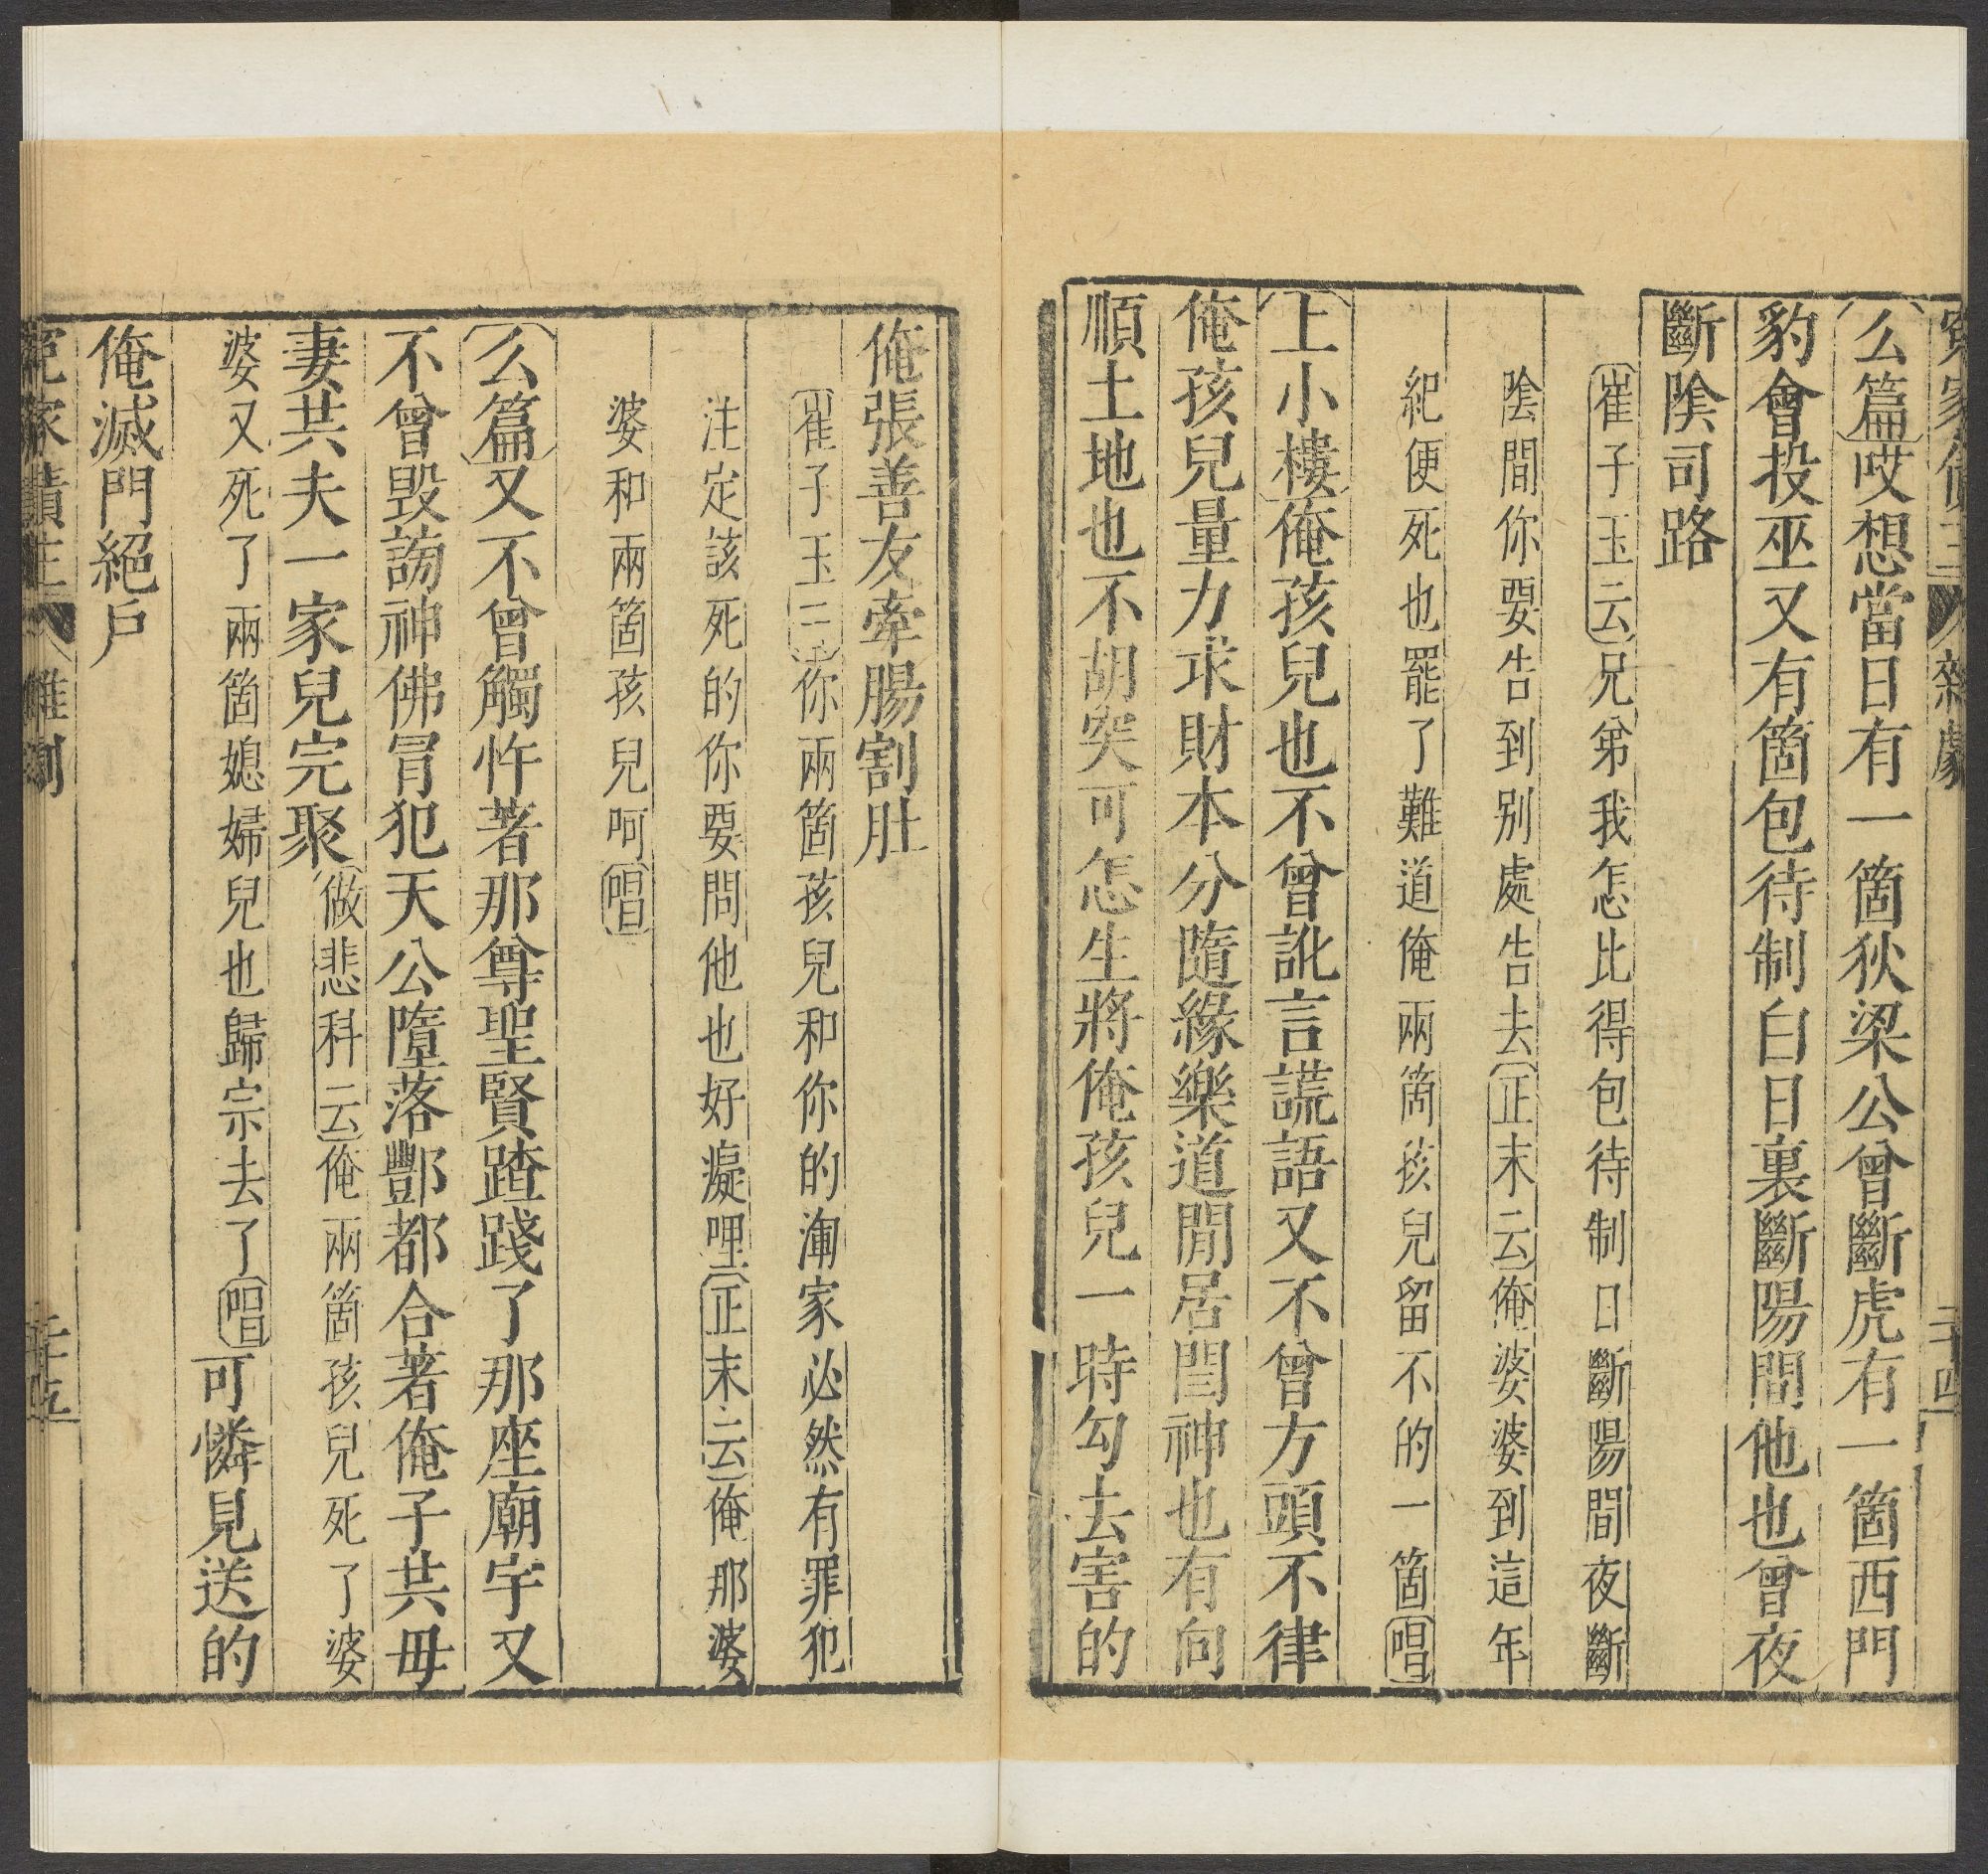 冤家債主 雜劇 二十四
〔么篇〕哎想當日有一箇狄梁公曾斷虎有一箇西門
豹會投巫又有箇包待制白日裏斷陽間他也曾夜
斷陰司路
〔崔子玉云〕兄弟我怎比得包待制日斷陽間夜斷
陰間你要告到别處告去〔正末云〕俺婆婆到這年
紀便死也罷了難道俺兩箇孩兒留不的一箇〔唱〕
〔上小樓〕俺孩兒也不曾訛言謊語又不曾方頭不律
俺孩兒量力求財本分隨緣樂道閒居閻神也有向
順土地也不胡突可怎生將俺孩兒一時勾去害的
俺張善友牽腸割肚
〔崔子玉云〕你兩箇孩兒和你的渾家必然有罪犯
注定該死的你要問他也好癡哩〔正末云〕俺那婆
婆和兩箇孩兒呵〔唱〕
〔么篇〕又不曾觸忤著那尊聖賢蹅踐了那座廟宇又
不曾毀謗神佛冐犯天公墮落酆都合著俺子共毋
妻共夫一家兒完聚〔做悲科云〕俺兩箇孩兒死了婆
婆又死了兩箇媳婦兒也歸宗去了〔唱〕可憐見送的
俺滅門絕戶
冤家債主 雜劇 二十五